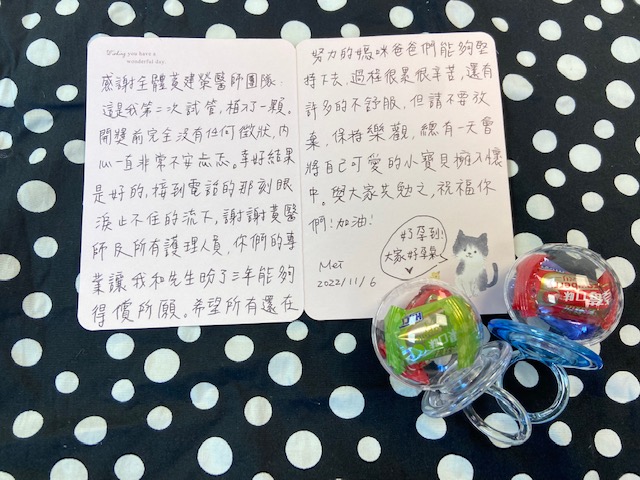 Wishing you have a
wonderful day.
感謝全體黃建榮醫師團隊:
這是我第二次試管,植入一顆。
開獎前完全沒有任何徵狀,內
心一直非常不安忐忑。幸好結果
是好的,接到電話的那刻眼
淚止不住的流下,謝謝黃醫
師及所有護理人員,你們的專
業讓我和先生盼了三年能夠
得償所願。希望所有還在
努力的媽咪爸爸們能夠堅
持下去,過程很累很辛苦,還有
許多的不舒服,但請不要放
棄,保持樂觀,總有一天會
將自己可愛的小寶貝擁入懷
中。與大家共勉之,祝福你
們!加油!
好孕到!
大家好孕氣
Mei
2022/11/6